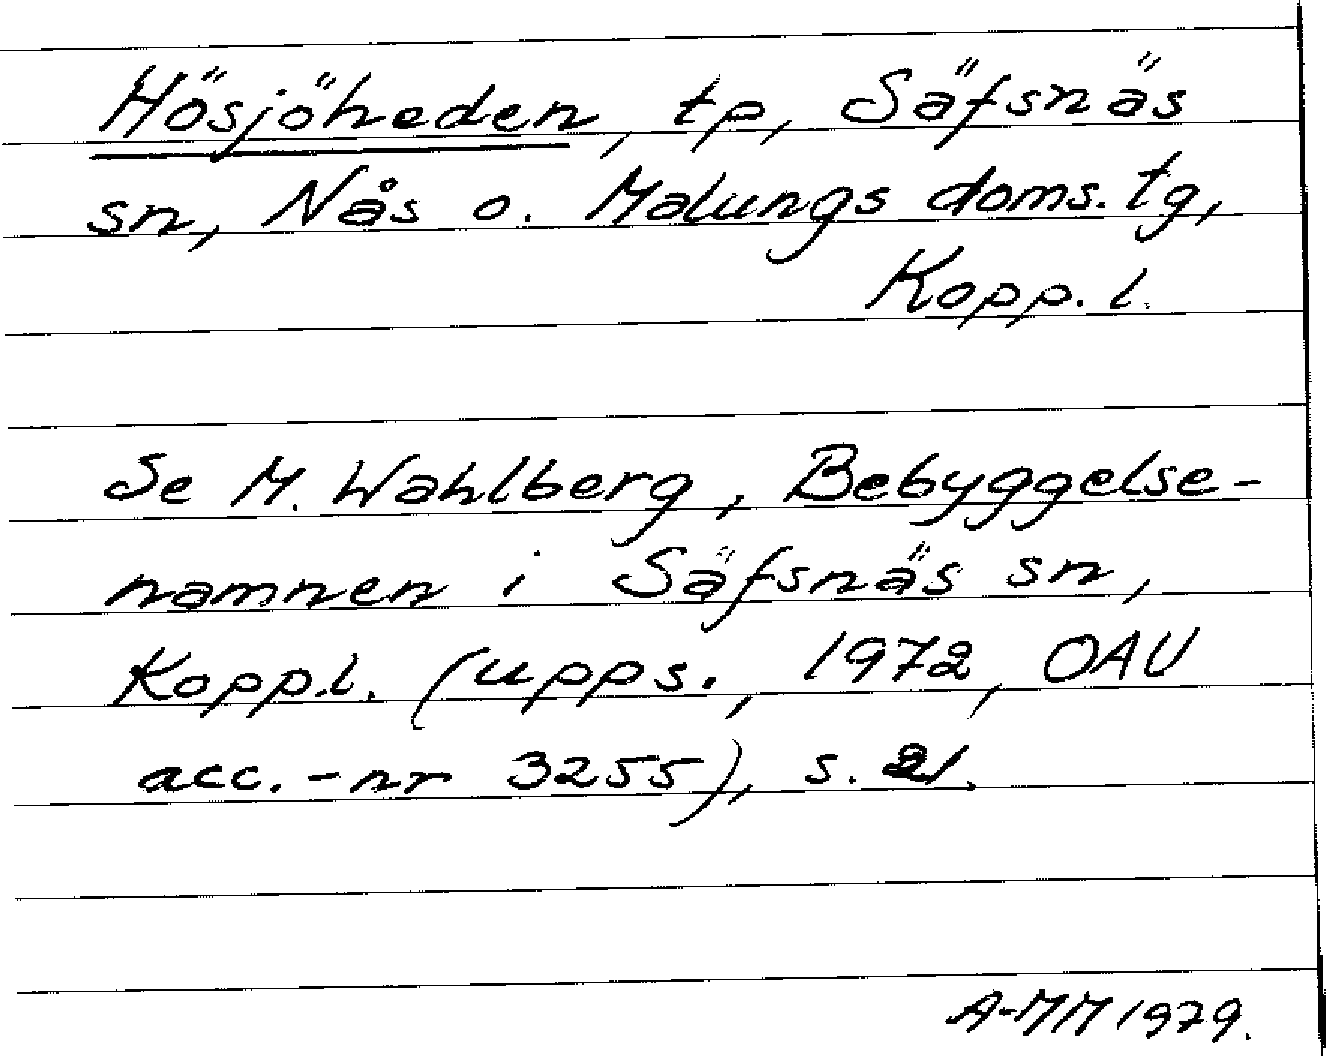 Hösjöheden, tp, Säfsnäs
sn, Nås o. Malungs doms. tg,
Kopp. l.
Se M. Wahlberg, Bebyggelse-
namnen i Säfsnäs sn,
Kopp.l. (upps., 1972, OAU
acc.-nr 3255), s. 21.
A-MM 1979.